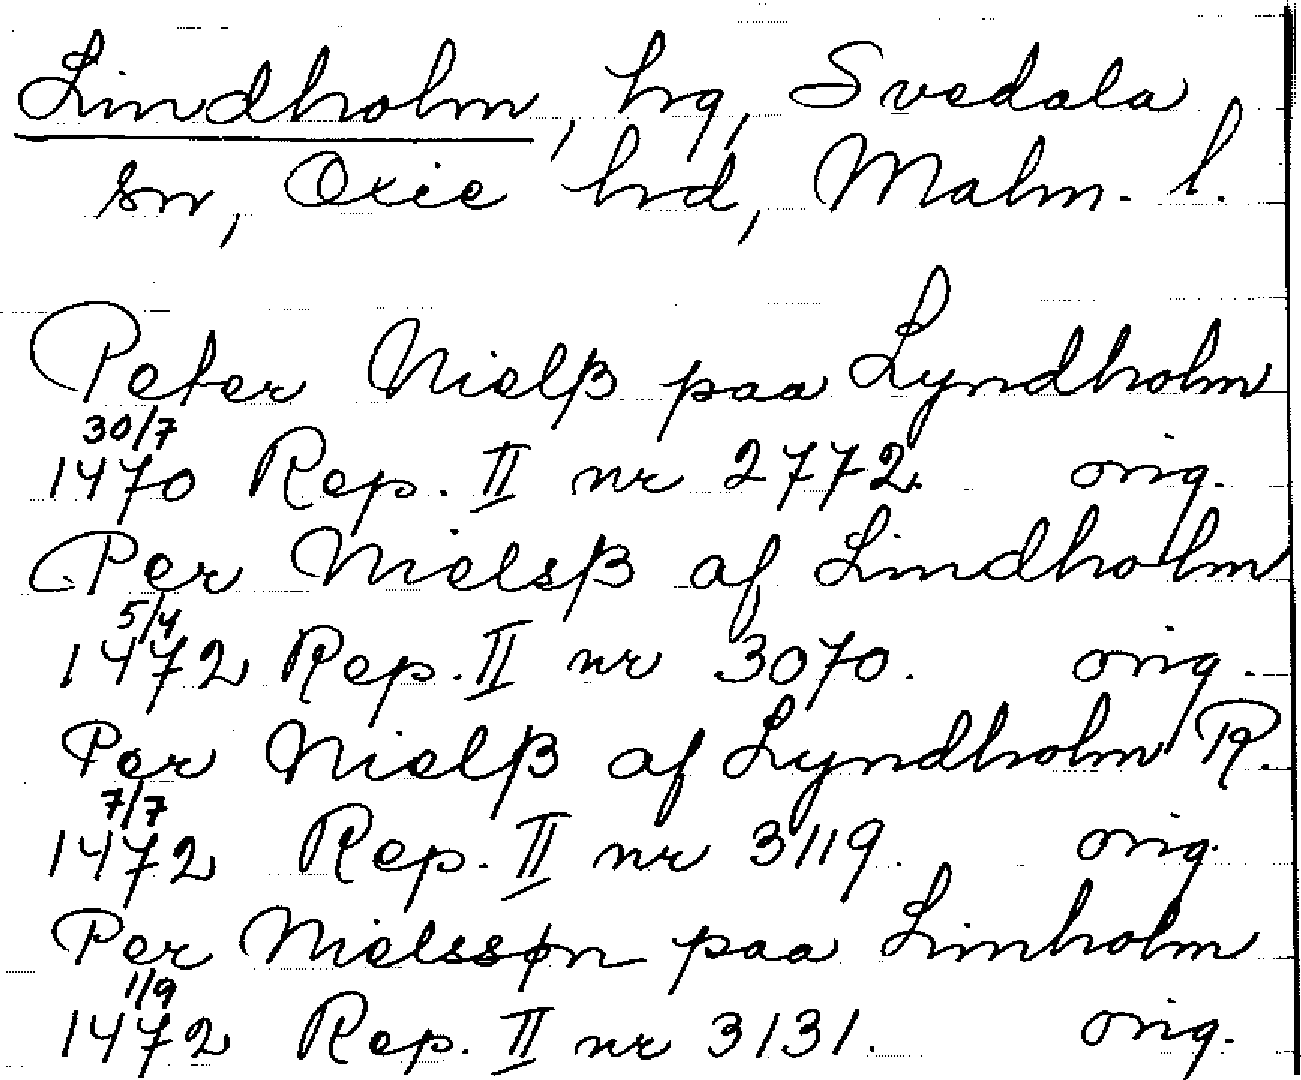 Lindholm, hg, Svedala
sn, Oxie hd, Malm. l.
Peter Nielß paa Lyndholm
30/7
1470 Rep. II nr 2772. orig.
Per Nielsß af Lindholm
5/4
1472 Rep. II nr 3070. orig.
Per Nielß af Lyndholm R.
7/7
1472 Rep. II nr 3119. orig.
Per Nielssøn paa Limholm
1/9
1472 Rep. II nr 3131. orig.